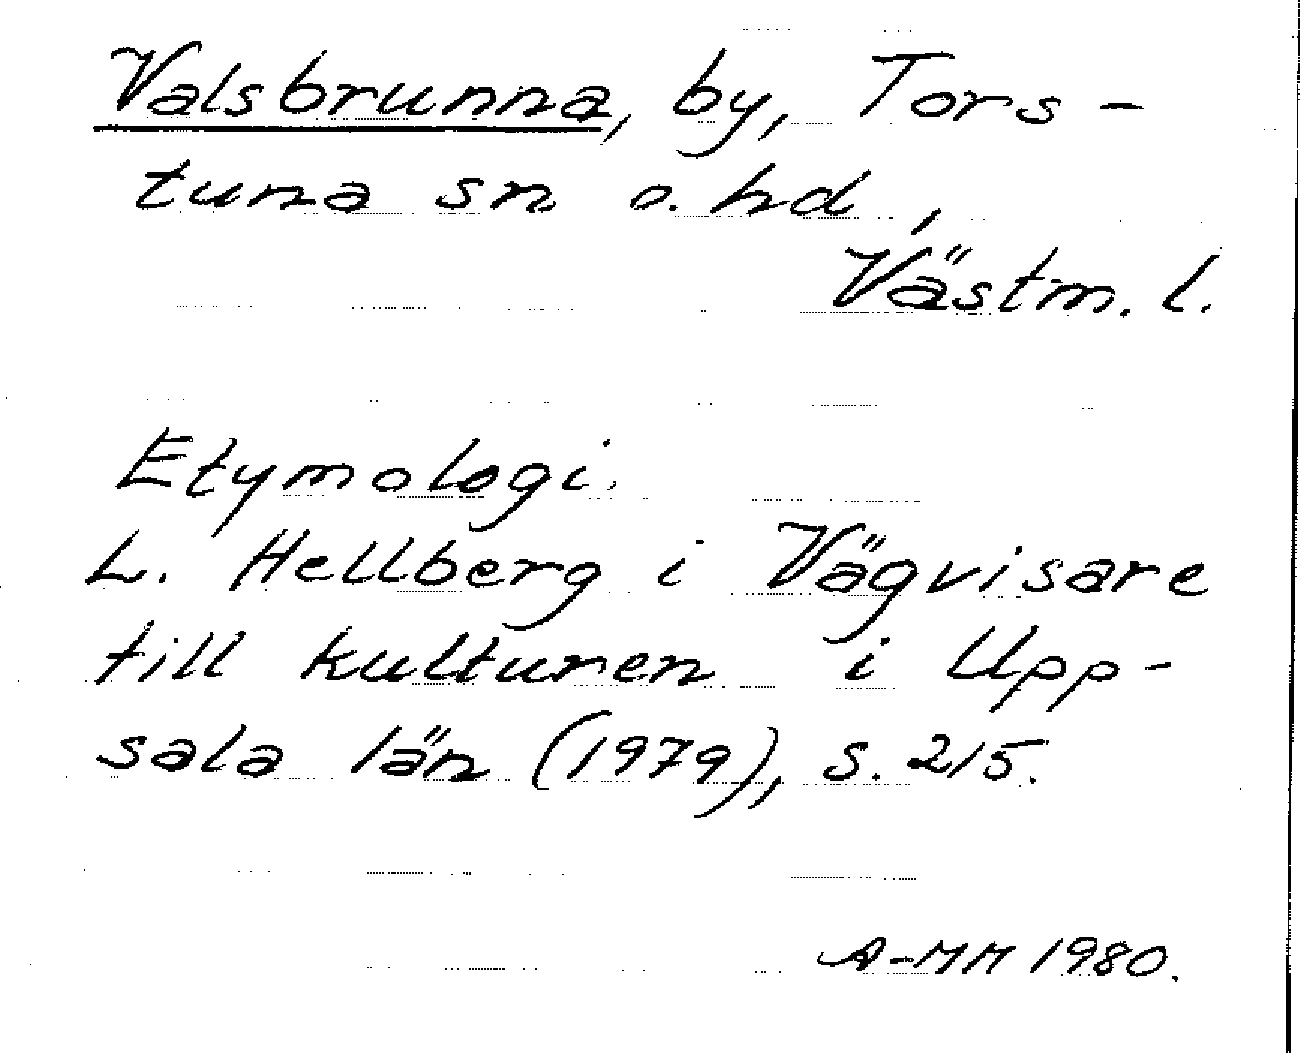 Valsbrunna, by, Tors-
tuna sn o. hd,
Västm. l.
Etymologi.
L. Hellberg i Vägvisare
till kulturen i Upp-
sala län (1979), s. 215.
A-MM 1980.